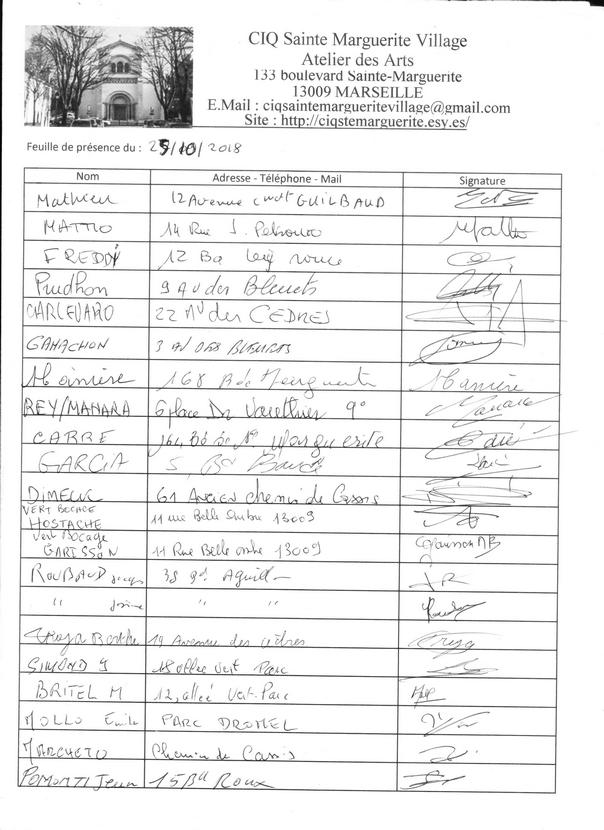 CIQ Sainte Marguerite Village
Atelier des Arts
133 boulevard Sainte-Marguerite
13009 MARSEILLE
E.Mail : ciqsaintemargueritevillage@gmail.com
Site : http://ciqstemarguerite.esy.es/
Feuille de présence du : 25/10/2018
Nom Adresse - Téléphone - Mail Signature
Mathieu 12 Avenue Cmdt GUILBAUD
MATTIO 14 Rue J.
FREDDY 12
Prudhon 9 AV des Bleuets
CARLEVARO 22 AV des CEDRES
GAMACHON 3 AV DES BLEUETS
168 Bd
REY/MANARA 6 place Dr 9°
CARRE 164 Bd Ste Marguerite
GARCIA 5, Bd
61 Ancien chemin de Cassis
VERT BOCAGE
HOSTACHE 11 rue Belle Ombre 13009
Vert Bocage
GARISSON 11 Rue Belle ombre 13009
ROUBAUD 38
" " "
Troja Berthe 19 Avenue des cèdres
SIMOND J 18 allée Vert Parc
BRITEL M 12, allée Vert-Parc
MOLLO Emile PARC DROMEL
MARCHETO Chemin de Cassis
POMONTI Jean 15 Bd Roux